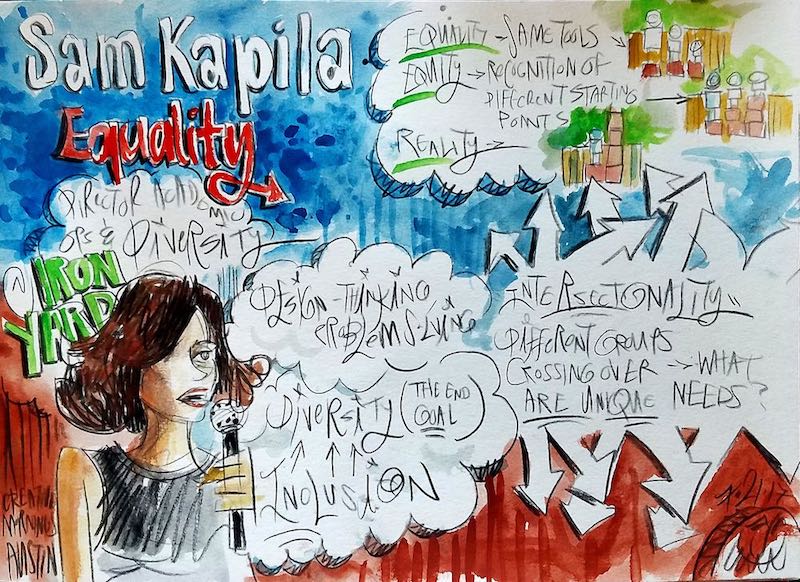 Sam Kapila
Equality
DIRECTOR ACADEMIC
OPS & DIVERSITY
IRON
YARD
EQUALITY → SAME TOOLS
EQUITY → RECOGNITION OF
DIFFERENT STARTING
POINTS
REALITY →
DESIGN-THINKING
PROBLEM SOLVING
DIVERSITY (THE END GOAL)
INCLUSION
INTERSECTIONALITY
DIFFERENT GROUPS
CROSSING OVER → WHAT
ARE UNIQUE NEEDS?
CREATIVE
MORNINGS
AUSTIN